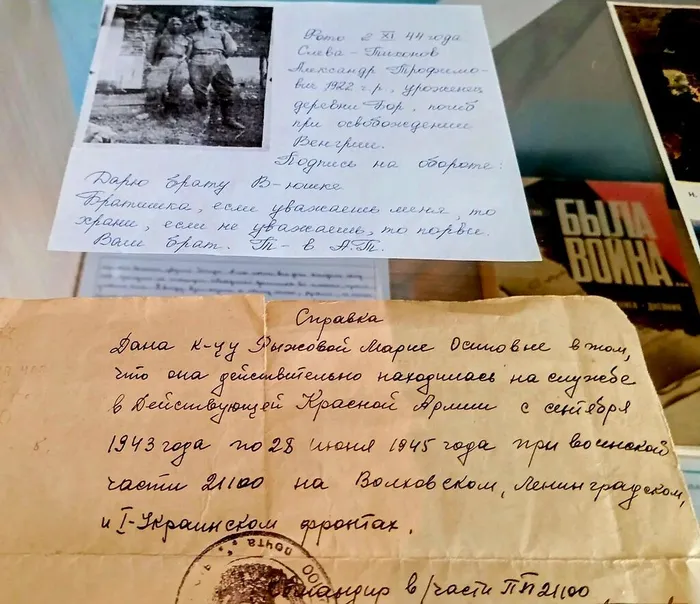 Фото 2 XI 44 года
Слева - Тихонов
Александр Трофимо-
вич 1922 г.р., уроженец
деревни Бор, погиб
при освобождении
Венгрии.
Подпись на обороте:
Дарю брату В-юшке
Братишка, если уважаешь меня, то
храни, если не уважаешь, то порви.
Ваш брат. Т-в А.Т.
БЫЛА
ВОЙНА...
Справка
Дана к-цу Рыжовой Марие Осиповне в том,
что она действительно находилась на службе
в Действующей Красной Армии с сентября
1943 года по 28 июня 1945 года при воинской
части 21100 на Волховском, Ленинградском,
и I-Украинском фронтах.
ПОЧТА
Командир в/части ПП 21100